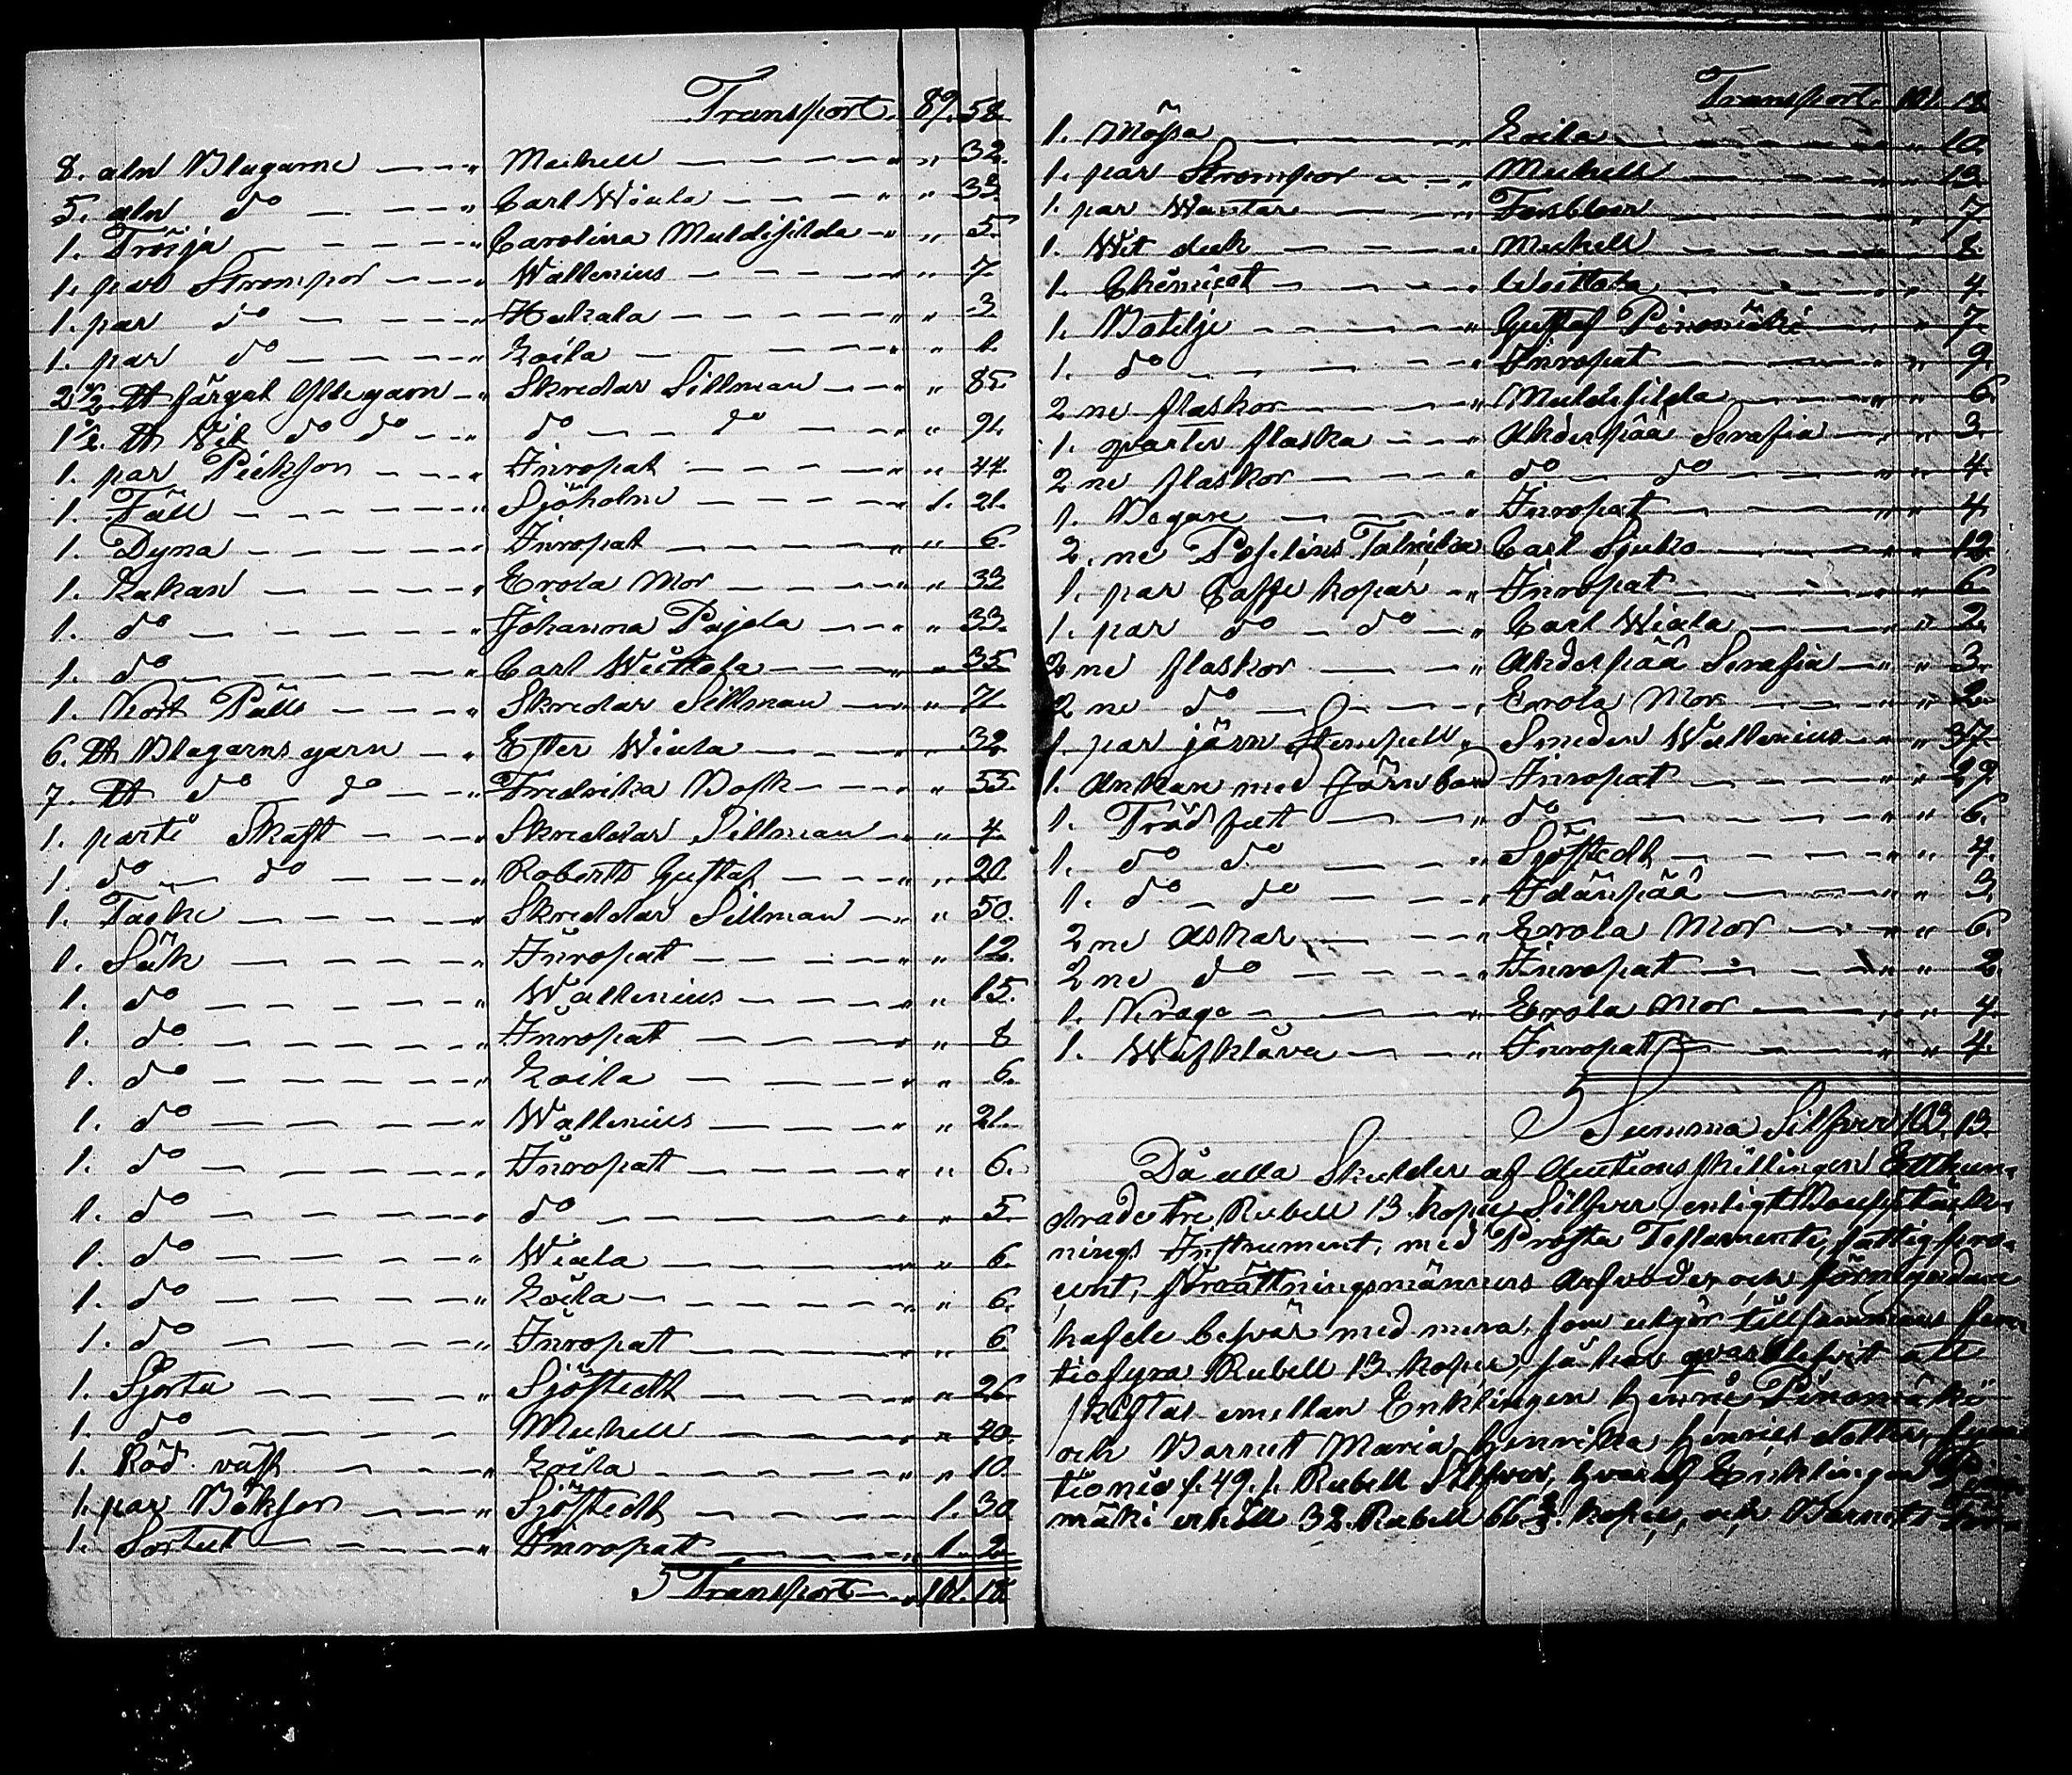 Transport 89. 58.
8. aln Blagarne — — " Meikell — — — " " 32.
5. aln do — — — " Carl Wiala — — — " " 33.
1. Tröija — — — " Carolina Muldifilda — " " 5.
1. par Strompor — — " Wallenius — — — " " 7.
1. par do — — — " Hakala — — — " " 3
1. par do — — — " Koila — — — " " 1.
2 1/2 ℔ färgat Ylle garn — " Skredar Sillman — — " " 85.
1 1/2 ℔ Vit do do — — " do — — do — — " 91.
1. par Pickson — — — " Inropat — — — " " 44.
1. Fäll — — — — " Sjöholm — — — " 1. 21.
1. Dyna — — — — " Inropat — — — " " 6.
1. Lakan — — — " Erola Mor — — — " " 33
1. do — — — — " Johanna Pajela — — " " 33.
1. do — — — — " Carl Weittola — — — " 35
1. Kort Päls — — — " Skredar Sillman — " " 71.
6. ℔ Blagarns garn — " Efter Wiala — — " " 32.
7. ℔ do — do — — " Fredrika Bosk — — — " 55.
1. parti Skaft — — " Skreddar Sillman — " " 4.
1. do — do — — " Roberts Gustaf — — — " " 20.
1. Täcke — — — — " Skreddar Sillman — " " 50.
1. Säk — — — — " Inropat — — — " " 12.
1. do — — — — " Wallenius — — — " " 15.
1. do — — — — " Inropat — — — " " 8
1. do — — — — " Koila — — — — " " 6.
1. do — — — — " Wallenius — — — " " 21.
1. do — — — — " Inropat — — — " " 6.
1. do — — — — " do — — — — " " 5
1. do — — — — " Wiala — — — — " " 6.
1. do — — — — " Koila — — — — " " 6.
1. do — — — — " Inropat — — — " " 6
1. Sjorta — — — — " Sjöstedt — — — — " " 26.
1. do — — — — " Meikell — — — — " " 20.
1. Röd väst — — — " Koila — — — — " " 10.
1. par Böksor — — " Sjöstedt — — — — 1. 30
1. Sortut — — — — " Inropat — — — — " 1. 2.
Transport — " 101. 18
Transport 101. 18
1. Mössa — — " Koila — — — " " 10.
1. par Strompor — — " Meikell — — — " " 13.
1. par Wantar — — " — — — " " 7.
1. Wit duk — — — " Meikell — — — " " 8.
1. Chemicet — — — " Weittola — — — " " 4.
1. Botelje — — — " Gustaf Pinomäki — " " 7.
1. do — — — — " Inropat — — — " " 9.
2 ne flaskor — — — " Muldifilda — — " " 6.
1. qvarter flaska — — " Ahdespää Serafia — " " 3.
2 ne flaskor — — — " do — — do — — " " 4.
1. Begare — — — " Inropat — — — " " 4
2. ne Poslins Talrikar Carl Sjuko — — " " 12
1. par Caffe kopar — " Inropat — — — " " 6
1. par do — do — " Carl Wiala — — " " 2.
2 ne flaskor — — " Ahdespää Serafia — " " 3.
2 ne do — — — " Erola Mor — — " " 2.
1. par järn " Smeden Wallenius — " 37
1. Ankare med Järn band Inropat — — — " "
1. Träd fat — — — " do — — — — " " 6.
1. do do — — — " Sjöstedt — — — " " 4.
1. do — do — — " Idänpää — — — " " 3.
2 ne Askar — — — " Erola Mor — — " " 6.
2 ne do — — — " Inropat — — — " " 2.
1. — — — " Erola Mor — — " " 4.
1. Wäfklåva — — " Inropat — — — " " 4.
Summa Silfver 103. 13.
Då alla Skulder af Auctions skillingen Etthun-
drade tre Rubell 13 kopek Silfver enligt Bouptäck-
nings Instrument, med Prosta Testamente, fattigpro-
cent, förrättningsmännens Arfvoden och
hafde besvär med mera, som utgör tillsammans
tiofyra Rubell 13. kopek, så har qvarblefvit att
skiftas emellan Enklingen Henric Pinomäki
och Barnet Maria Henrika Henrics dotter,
tionio /: 49. /: Rubell Silfver, hvaraf Enklingen
mäki erhåll 32. Rubell 66 2/3 kopek, och Barnet